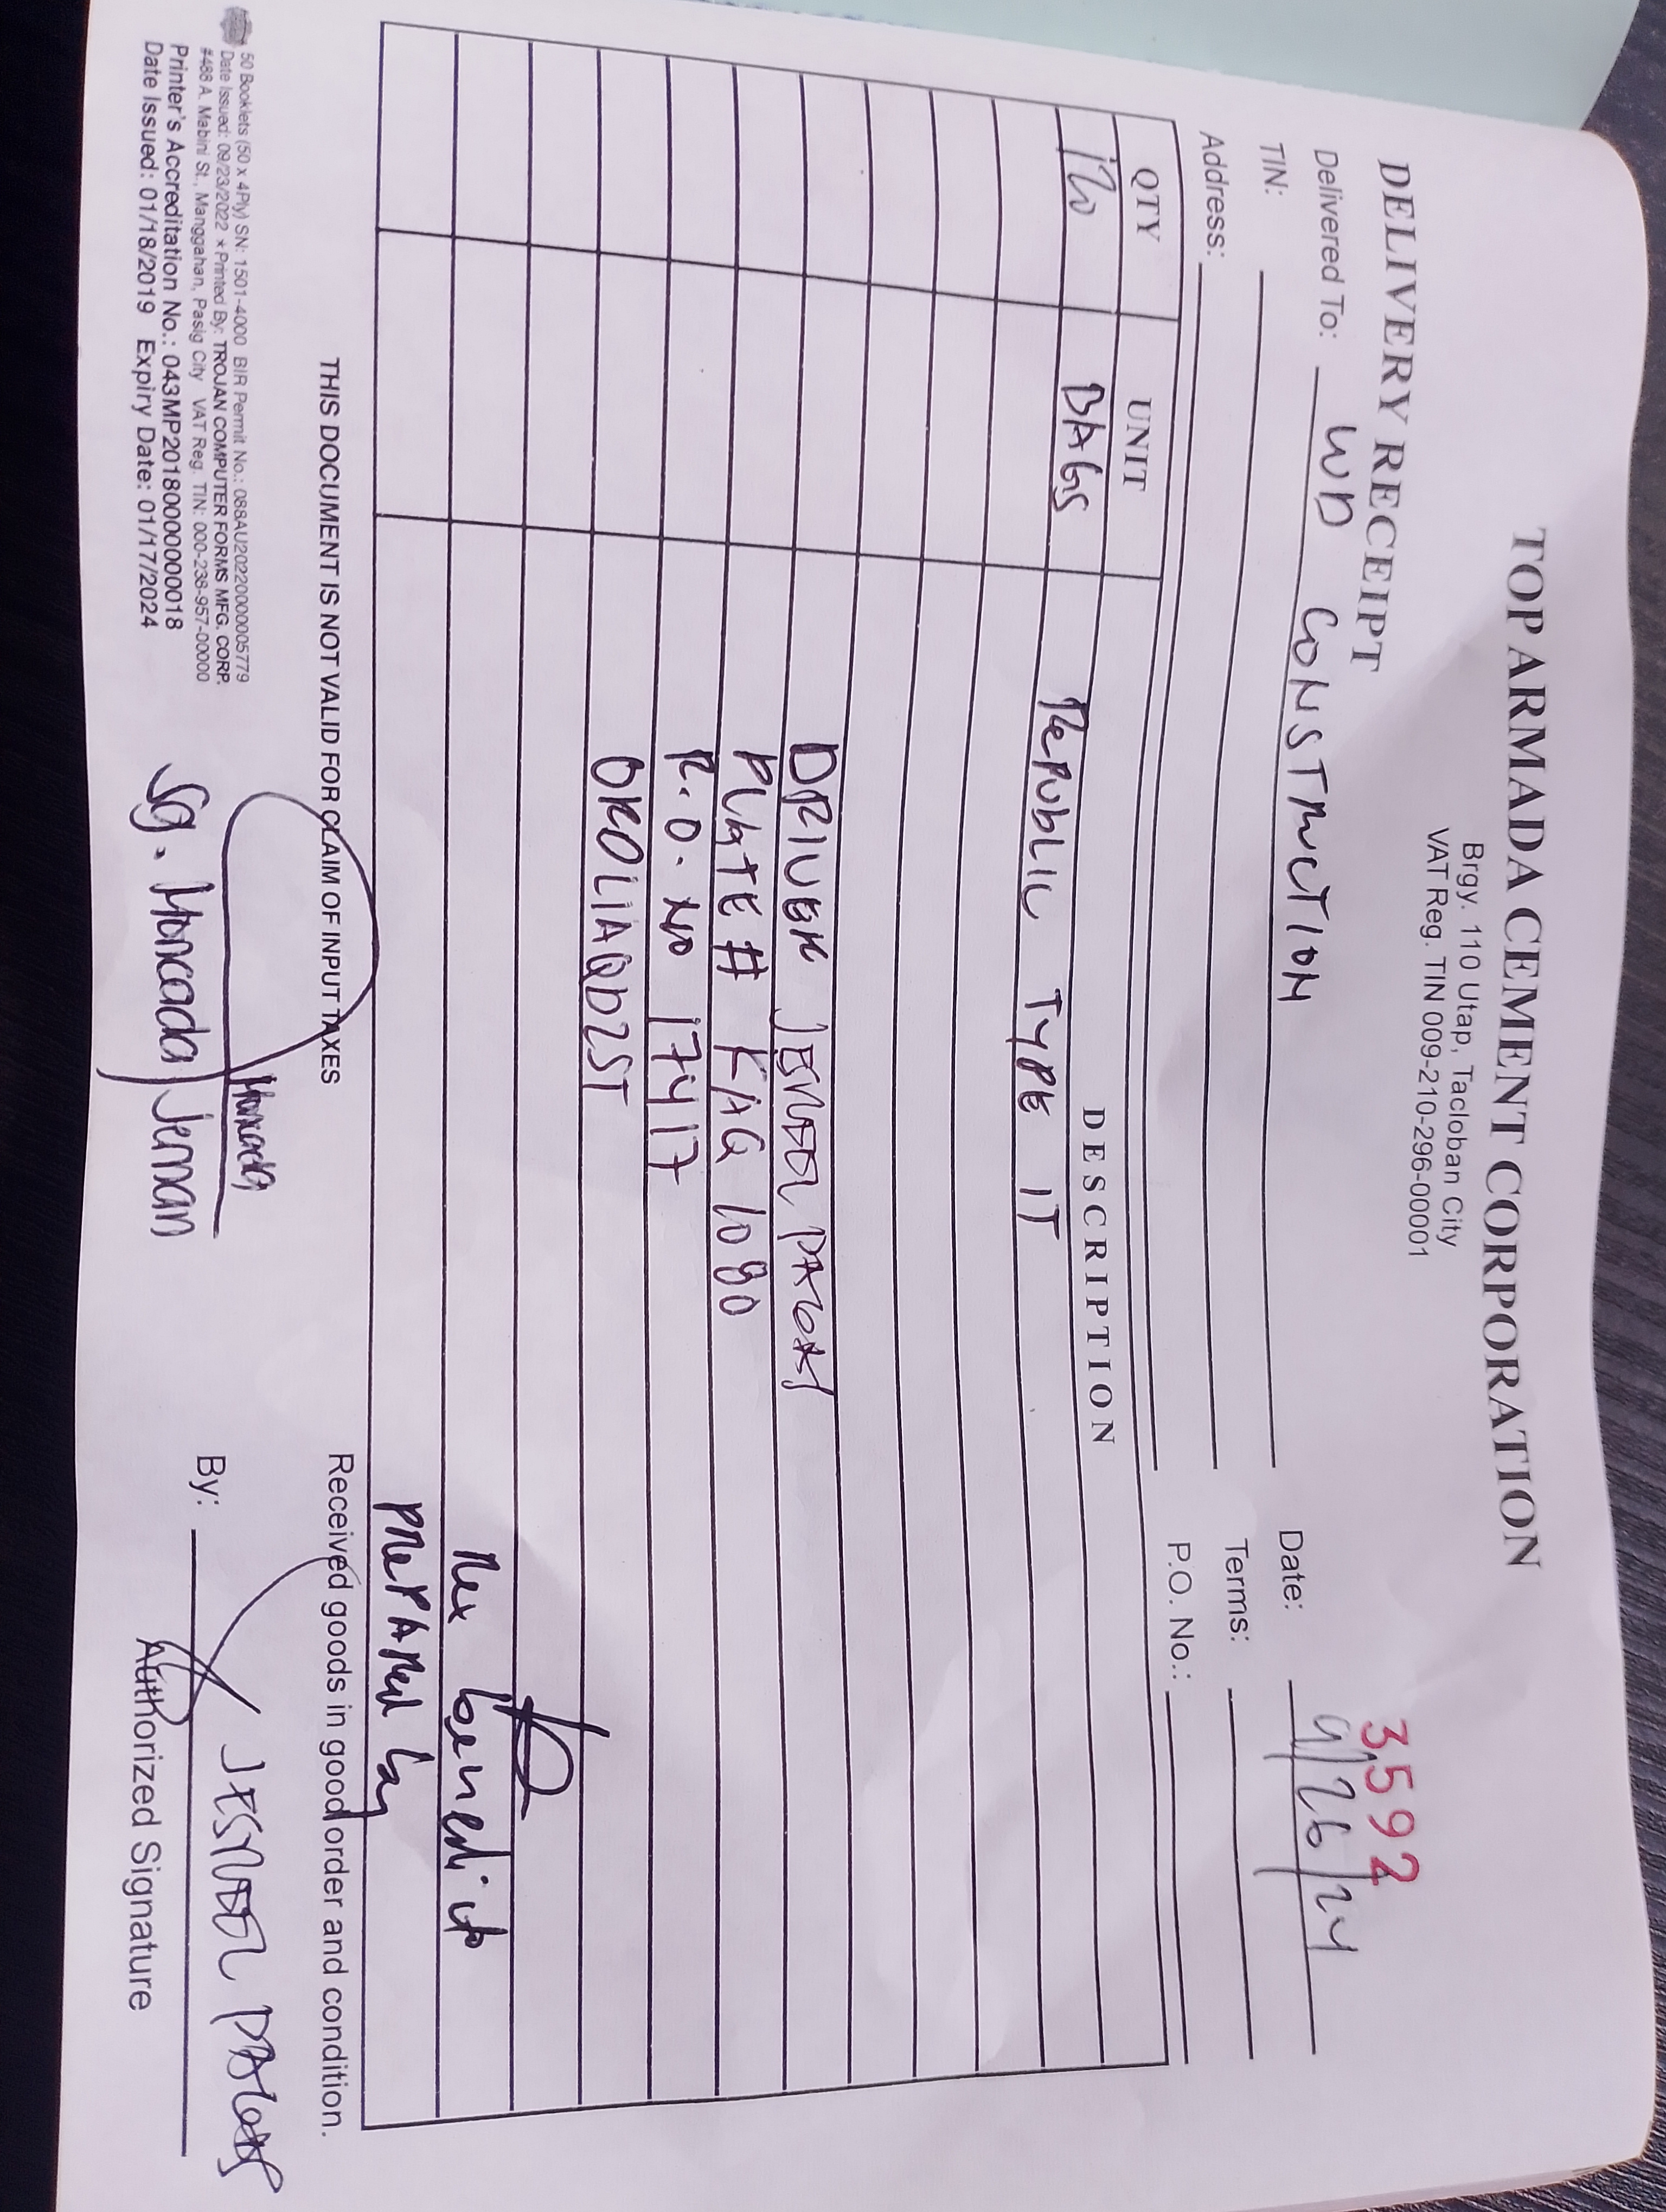 TOP ARMADA CEMENT CORPORATION
Brgy. 110 Utap, Tacloban City
VAT Reg. TIN 009-210-296-00001
DELIVERY RECEIPT
3592
Delivered To: WD CONSTRUCTION
Date: 9/26/24
TIN:
Terms:
Address:
P.O. No.:
QTY UNIT DESCRIPTION
120 BAGS REPUBLIC TYPE 1T
DRIVER
PLATE # KAQ 1080
R.O. NO 17417
OROLIAQD25T
Rex benedicto
PREPARed by
THIS DOCUMENT IS NOT VALID FOR CLAIM OF INPUT TAXES
Received goods in good order and condition.
50 Booklets (50 x 4Ply) SN: 1501-4000 BIR Permit No.: 088AU20220000005779
Date Issued: 09/23/2022 * Printed By: TROJAN COMPUTER FORMS MFG. CORP.
#488 A. Mabini St., Manggahan, Pasig City VAT Reg. TIN: 000-238-957-00000
Printer's Accreditation No.: 043MP20180000000018
Date Issued: 01/18/2019 Expiry Date: 01/17/2024
Moncada
Sg. Moncada, Jeman
By:
Authorized Signature